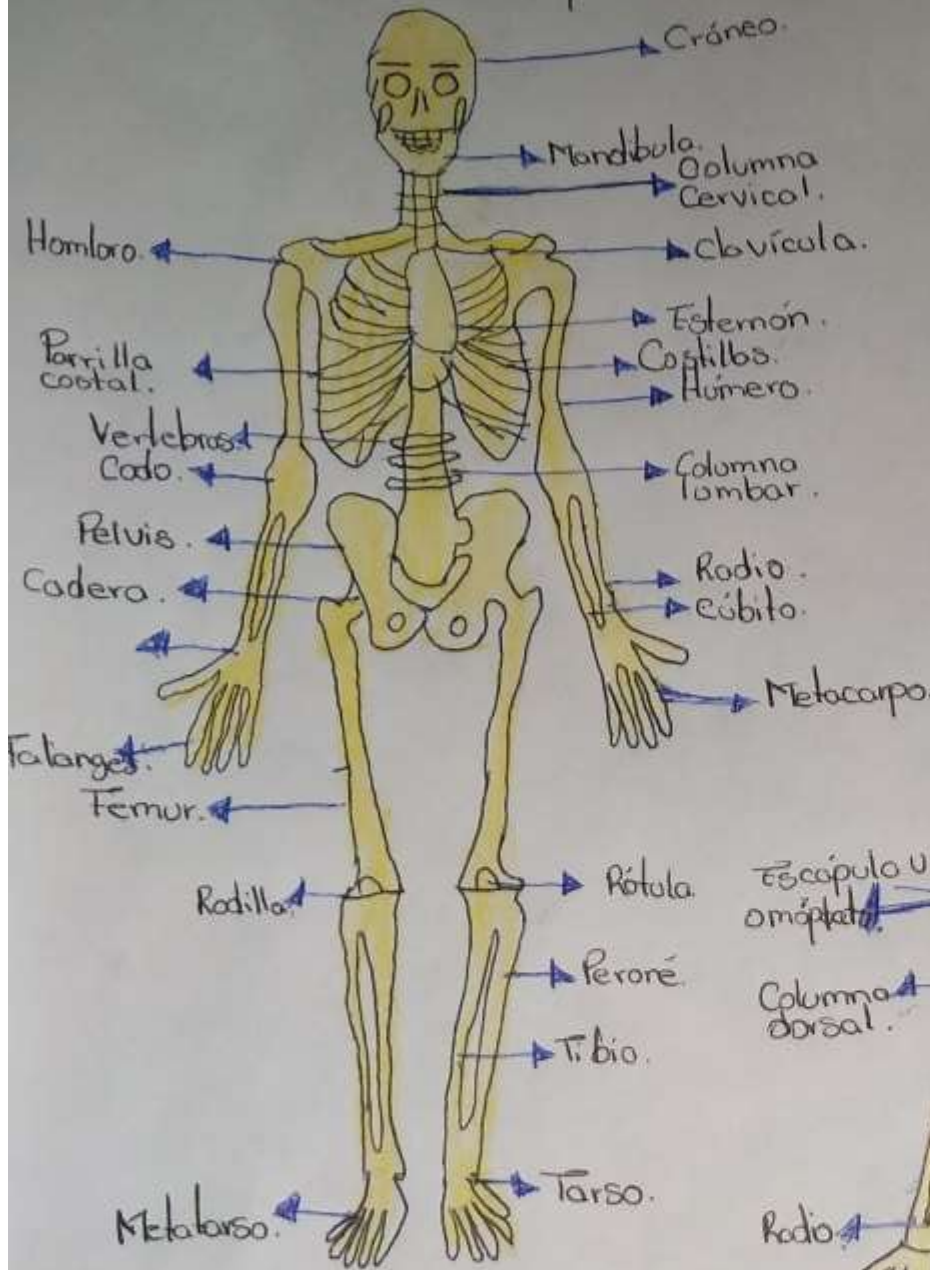 Cráneo.
Mandíbula.
Columna
Cervical.
Hombro.
Clavícula.
Esternón.
Parrilla
costal.
Costillas.
Húmero.
Vertebras
Codo.
Columna
lumbar.
Pelvis.
Cadera.
Radio.
Cúbito.
Metacarpo.
Falanges.
Femur.
Rodilla.
Rótula.
Escápula U
omóplato.
Peroné.
Columna
dorsal.
Tibia.
Tarso.
Metatarso.
Radio.